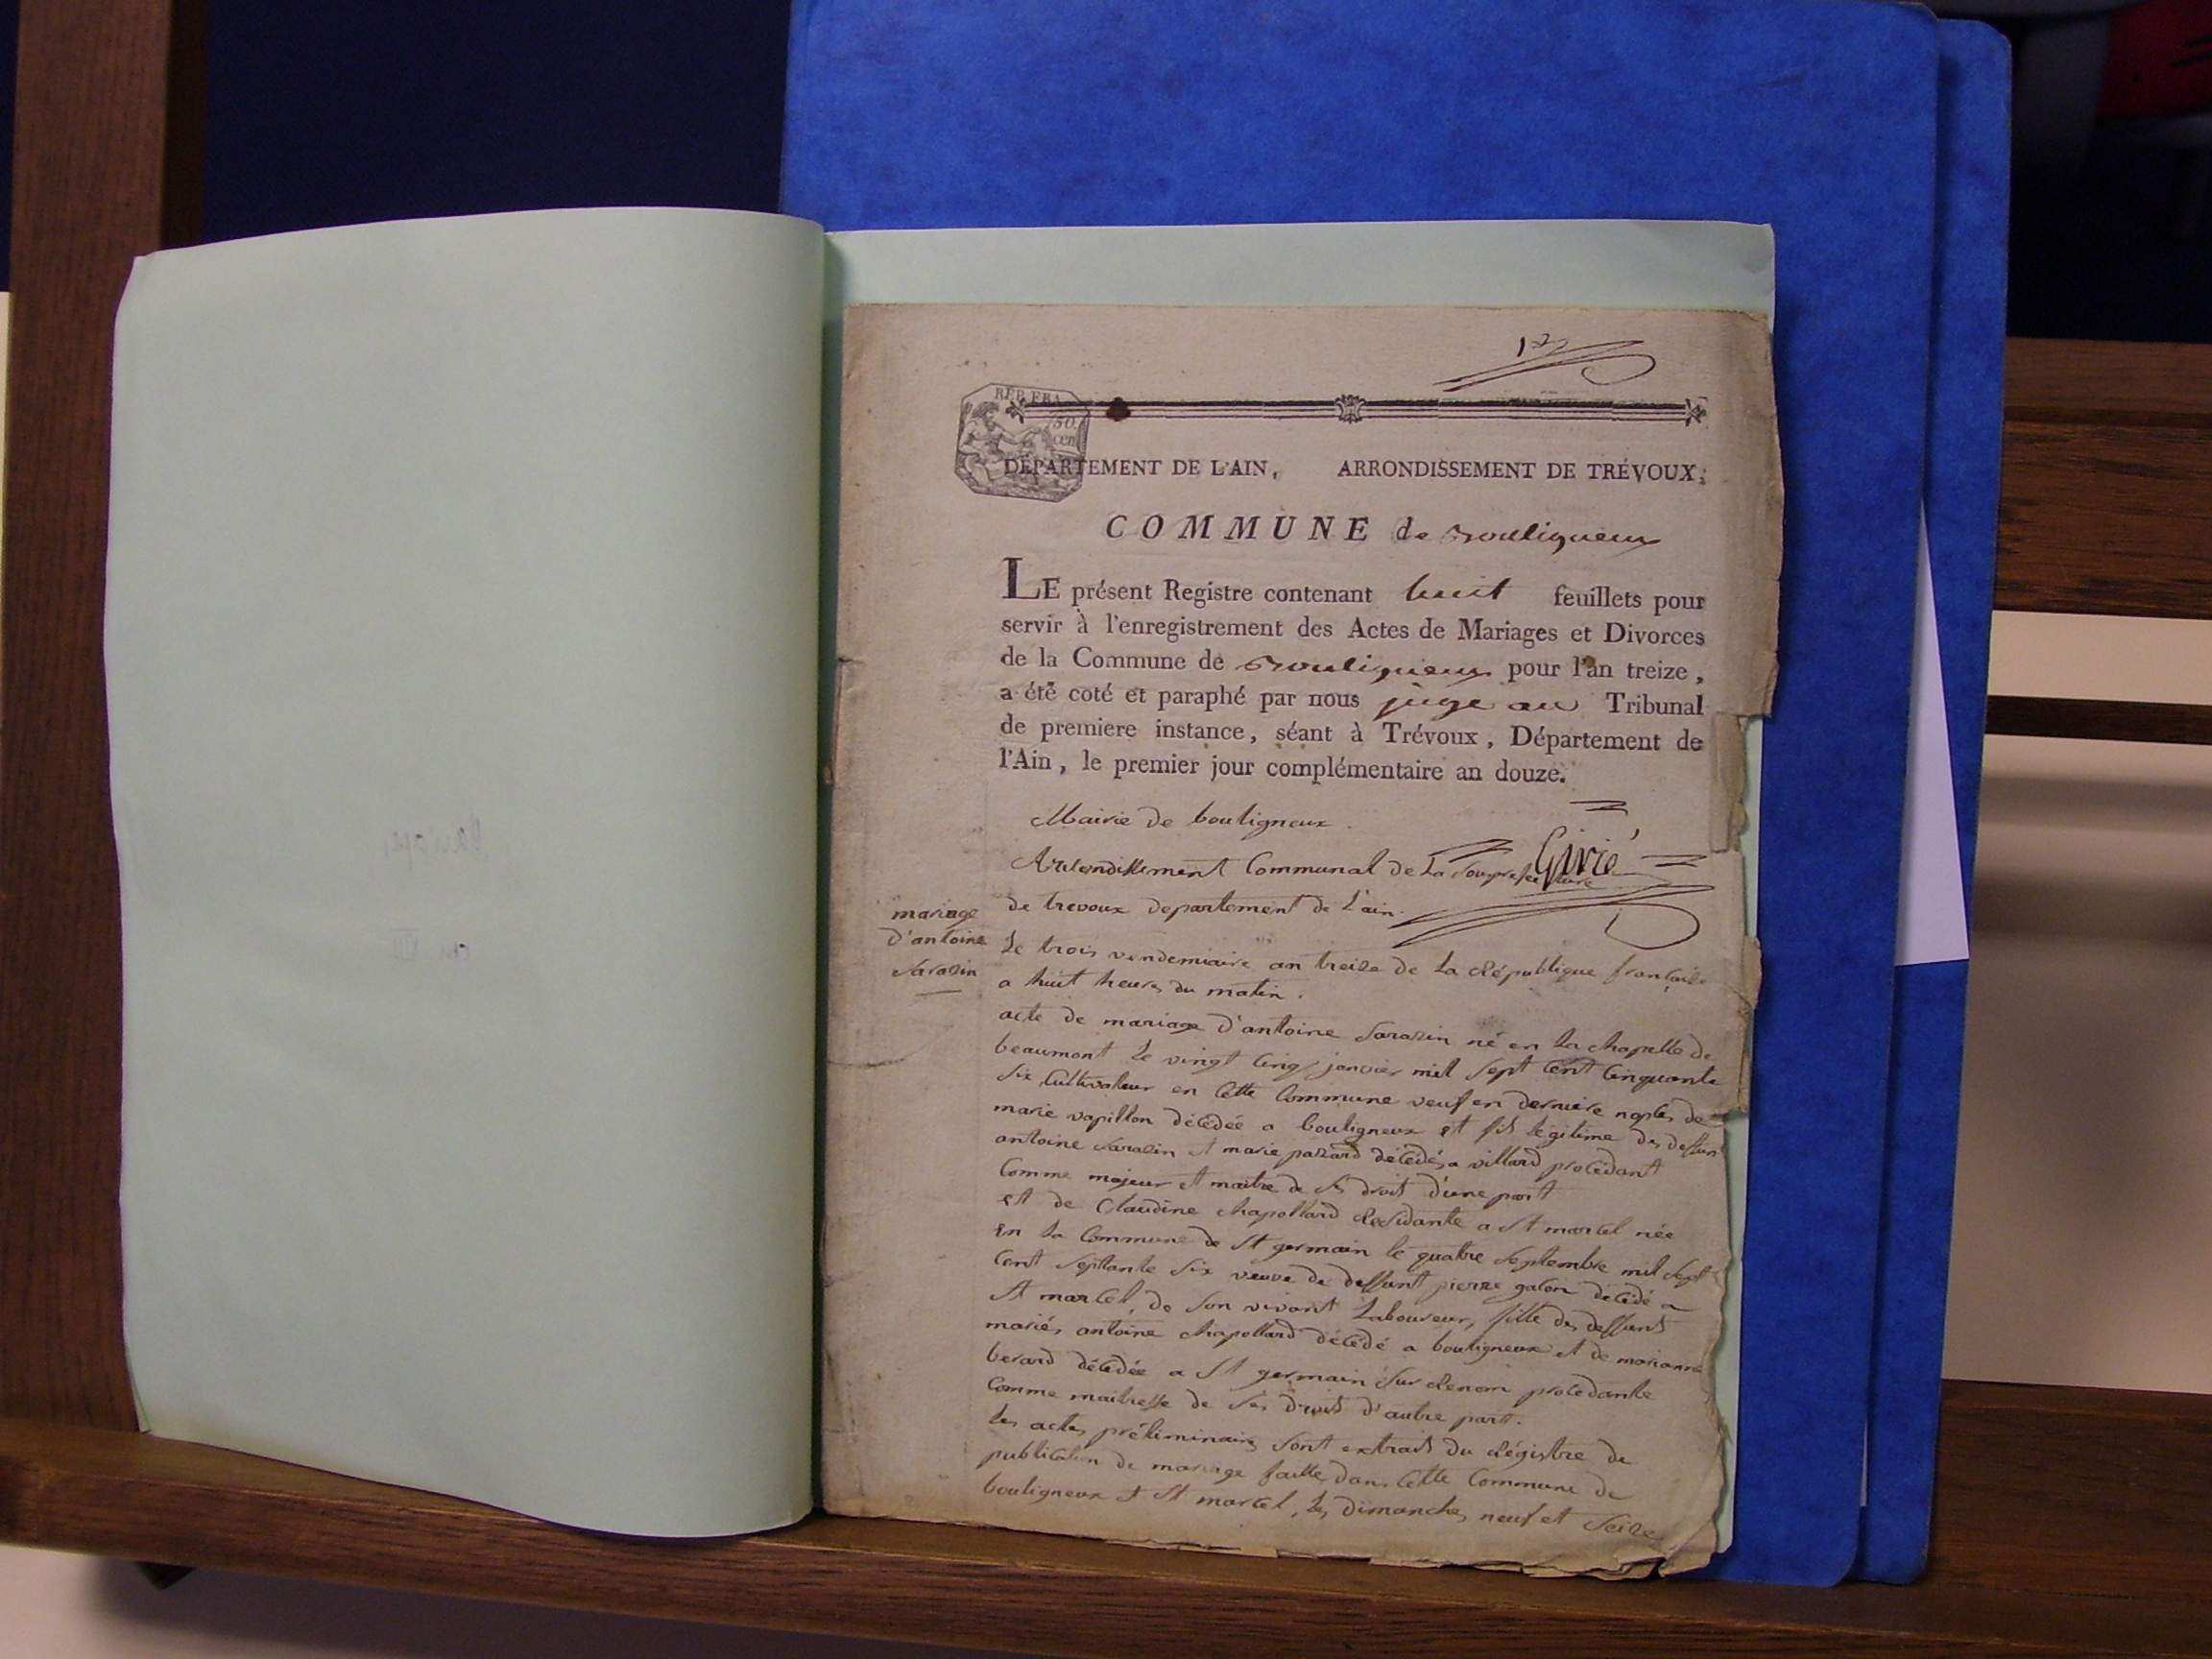 1er
REP. FRA.
50
cen
DÉPARTEMENT DE L'AIN, ARRONDISSEMENT DE TRÉVOUX;
COMMUNE de Bouligneux
LE présent Registre contenant huit feuillets pour
servir à l'enregistrement des Actes de Mariages et Divorces
de la Commune de Bouligneux pour l'an treize,
a été coté et paraphé par nous juge au Tribunal
de premiere instance, séant à Trévoux, Département de
l'Ain, le premier jour complémentaire an douze.
Mairie de bouligneux.
Arrondissement Communal de la Souprefecture
Givié
de trevoux departement de L'ain.
mariage
d'antoine
Sarasin
Le trois vendemiaire an treize de La République française
a huit heures du matin.
acte de mariage d'antoine Sarasin né en La chapelle de
beaumont le vingt Cinq janvier mil Sept Cent Cinquante
Six Cultivateur en Cette Commune veuf en derniere noples de
marie vapillon décédée a bouligneux et fils légitime des deffunt
antoine Sarasin et marie pazard décédés a villard procédant
Comme majeur et maitre de ses droit d'une part
et de Claudine Chapollard Residante a St marcel née
en la Commune de St germain le quatre Septembre mil Sept
Cent Septante Six veuve de deffunt pierre galon décédé a
St marcel, de Son vivant Laboureur, fille des deffunts
mariés antoine Chapollard décédé a bouligneux et de marianne
berard décédée a St germain Sur Renom procedante
Comme maitresse de Ses droits d'autre part.
les actes préliminaires Sont extraits du Régistre de
publication de mariage faitte dans Cette Commune de
bouligneux et St marcel, les dimanches neuf et Seize